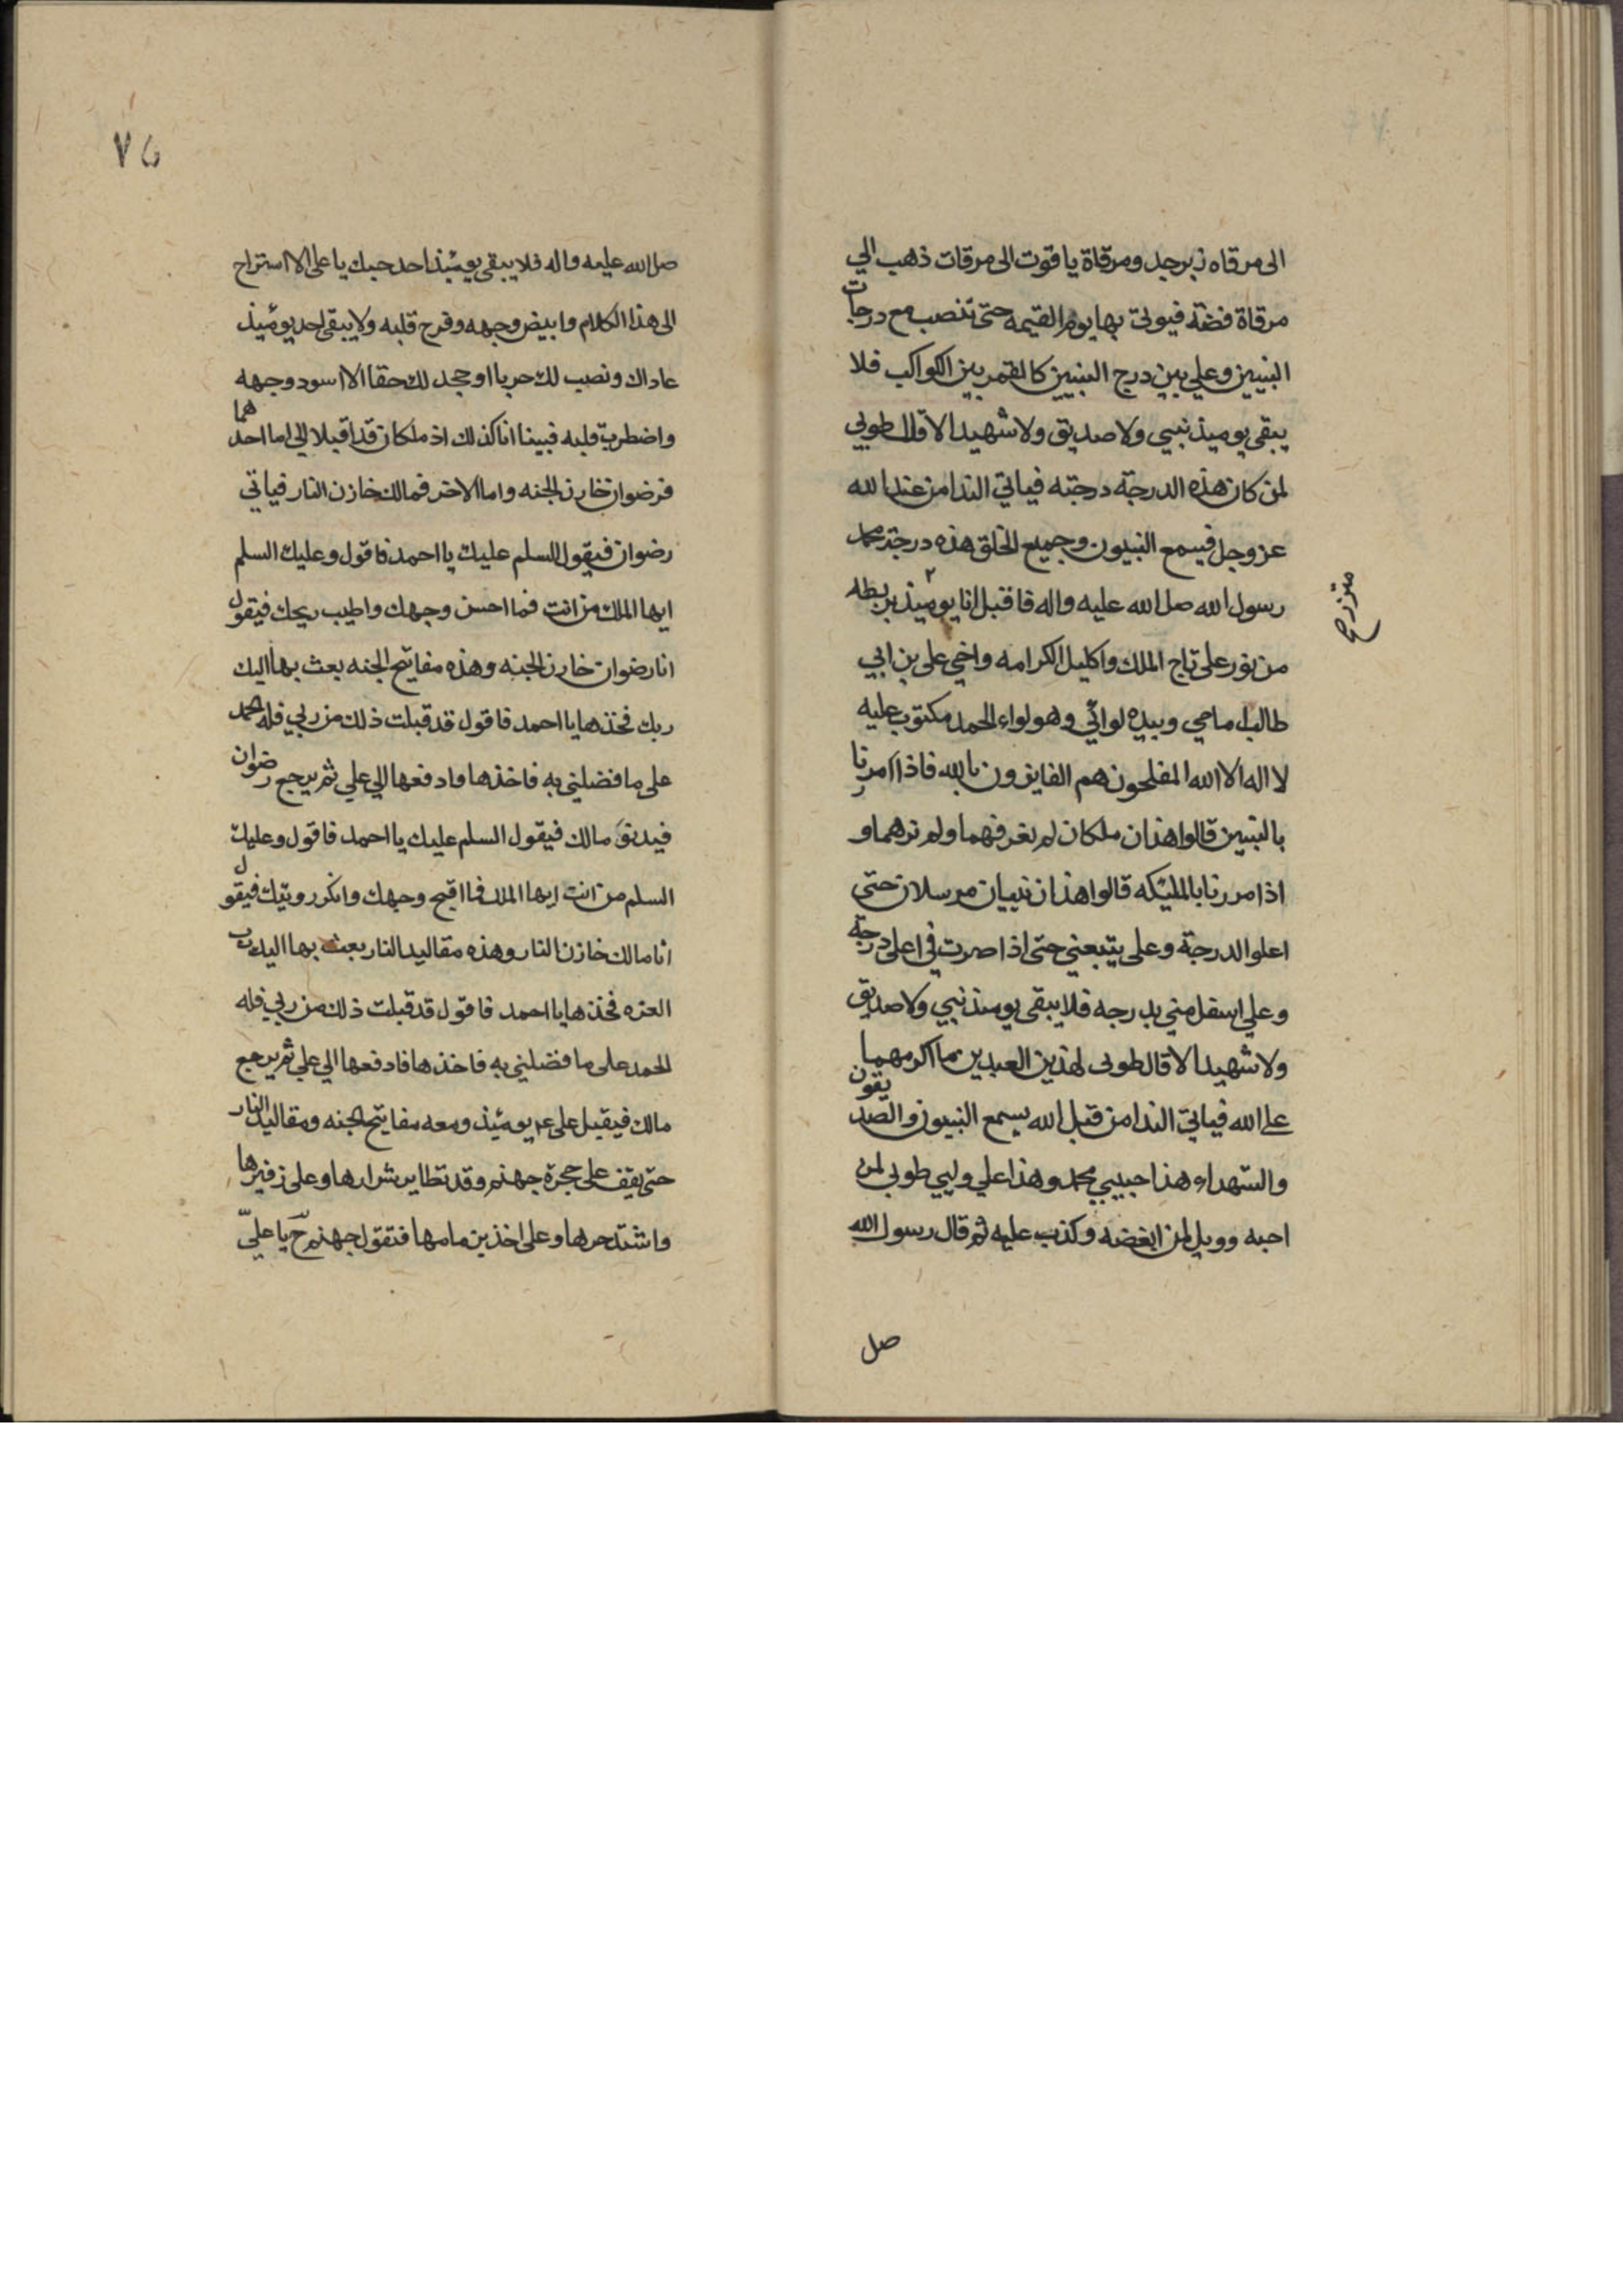 الى مرقاه زبرجد ومرقاة ياقوت الى مرقات ذهب الي
مرقاة فضة فيوتى بها يوم القيمه حتى تنصب مع درجات
النبيين وهي بين درج النبيين كالقمر بين الكواكب فلا
يبقى يوميذ نبي ولا صديق ولا شهيد الا قال طوبي
لمن كان هذه الدرجة درجته فياتي الندا من عند الله
عز وجل فيسمع النبيون وجميع الخلق هذه درجة محمد
رسول الله صل الله عليه واله فاقبل انا يوميذ بربطه
متزرح
من نور على تاج الملك واكليل الكرامه واخي على بن ابي
طالب امامي وبيده لوائي وهو لواء الحمد مكتوب عليه
لا اله الا الله المفلحون هم الفايزون بالله فاذا مررنا
بالنبيين قالوا هذان ملكان لم نعرفهما ولم نرهما و
اذا مررنا بالمليكه قالوا هذان نبيان مرسلان حتى
اعلو الدرجة وعلى يتبعني حتى اذا صرت في اعلى درجة
وعلي اسفل مني بدرجه فلا يبقى يوميذ نبي ولا صديق
ولا شهيد الا قال طوبى لهذين العبدين ما اكرمهما
على الله فياتي الندا من قبل الله يسمع النبيون والصديقون
والشهداء هذا حبيبي محمد وهذا علي وليي طوبي لمن
احبه وويل لمن ابغضه وكذب عليه ثم قال رسول الله
صل
٧٥
صل الله عليه واله فلا يبقى يوميذ احد حبك يا على الا استراح
الى هذا الكلام وابيض وجهه وفرح قلبه ولا يبقى احد يوميذ
عاداك ونصب لك حربا او جحد لك حقا الا اسود وجهه
واضطرب قلبه فبينا انا كذلك اذ ملكان قد اقبلا الي اما احدهما
فرضوان خازن الجنه واما الاخر فمالك خازن النار فياتي
رضوان فيقول السلم عليك يا احمد فاقول وعليك السلم
ايها الملك من انت فما احسن وجهك واطيب ريحك فيقول
انا رضوان خازن الجنه وهذه مفاتيح الجنه بعث بها اليك
ربك فخذها يا احمد فاقول قد قبلت ذلك من ربي فله الحمد
على ما فضلني به فاخذها وادفعها الي علي ثم يرجع رضوان
فيدنو مالك فيقول السلم عليك يا احمد فاقول وعليك
السلم من انت ايها الملك فما اقبح وجهك وانكر رويتك فيقول
انا مالك خازن النار وهذه مقاليد النار بعث بها اليك رب
العزه فخذها يا احمد فاقول قد قبلت ذلك من ربي فله
الحمد على ما فضلني به فاخذها فادفعها الي علي ثم يرجع
مالك فيقبل على ع يوميذ ومعه مفاتيح الجنه ومقاليد النار
حتى يقف على حجرة جهنم وقد تطاير شرارها وعلى زفيرها
واشتد حرها وعلى اخذ بزمامها فتقول جهنم ح يا علي